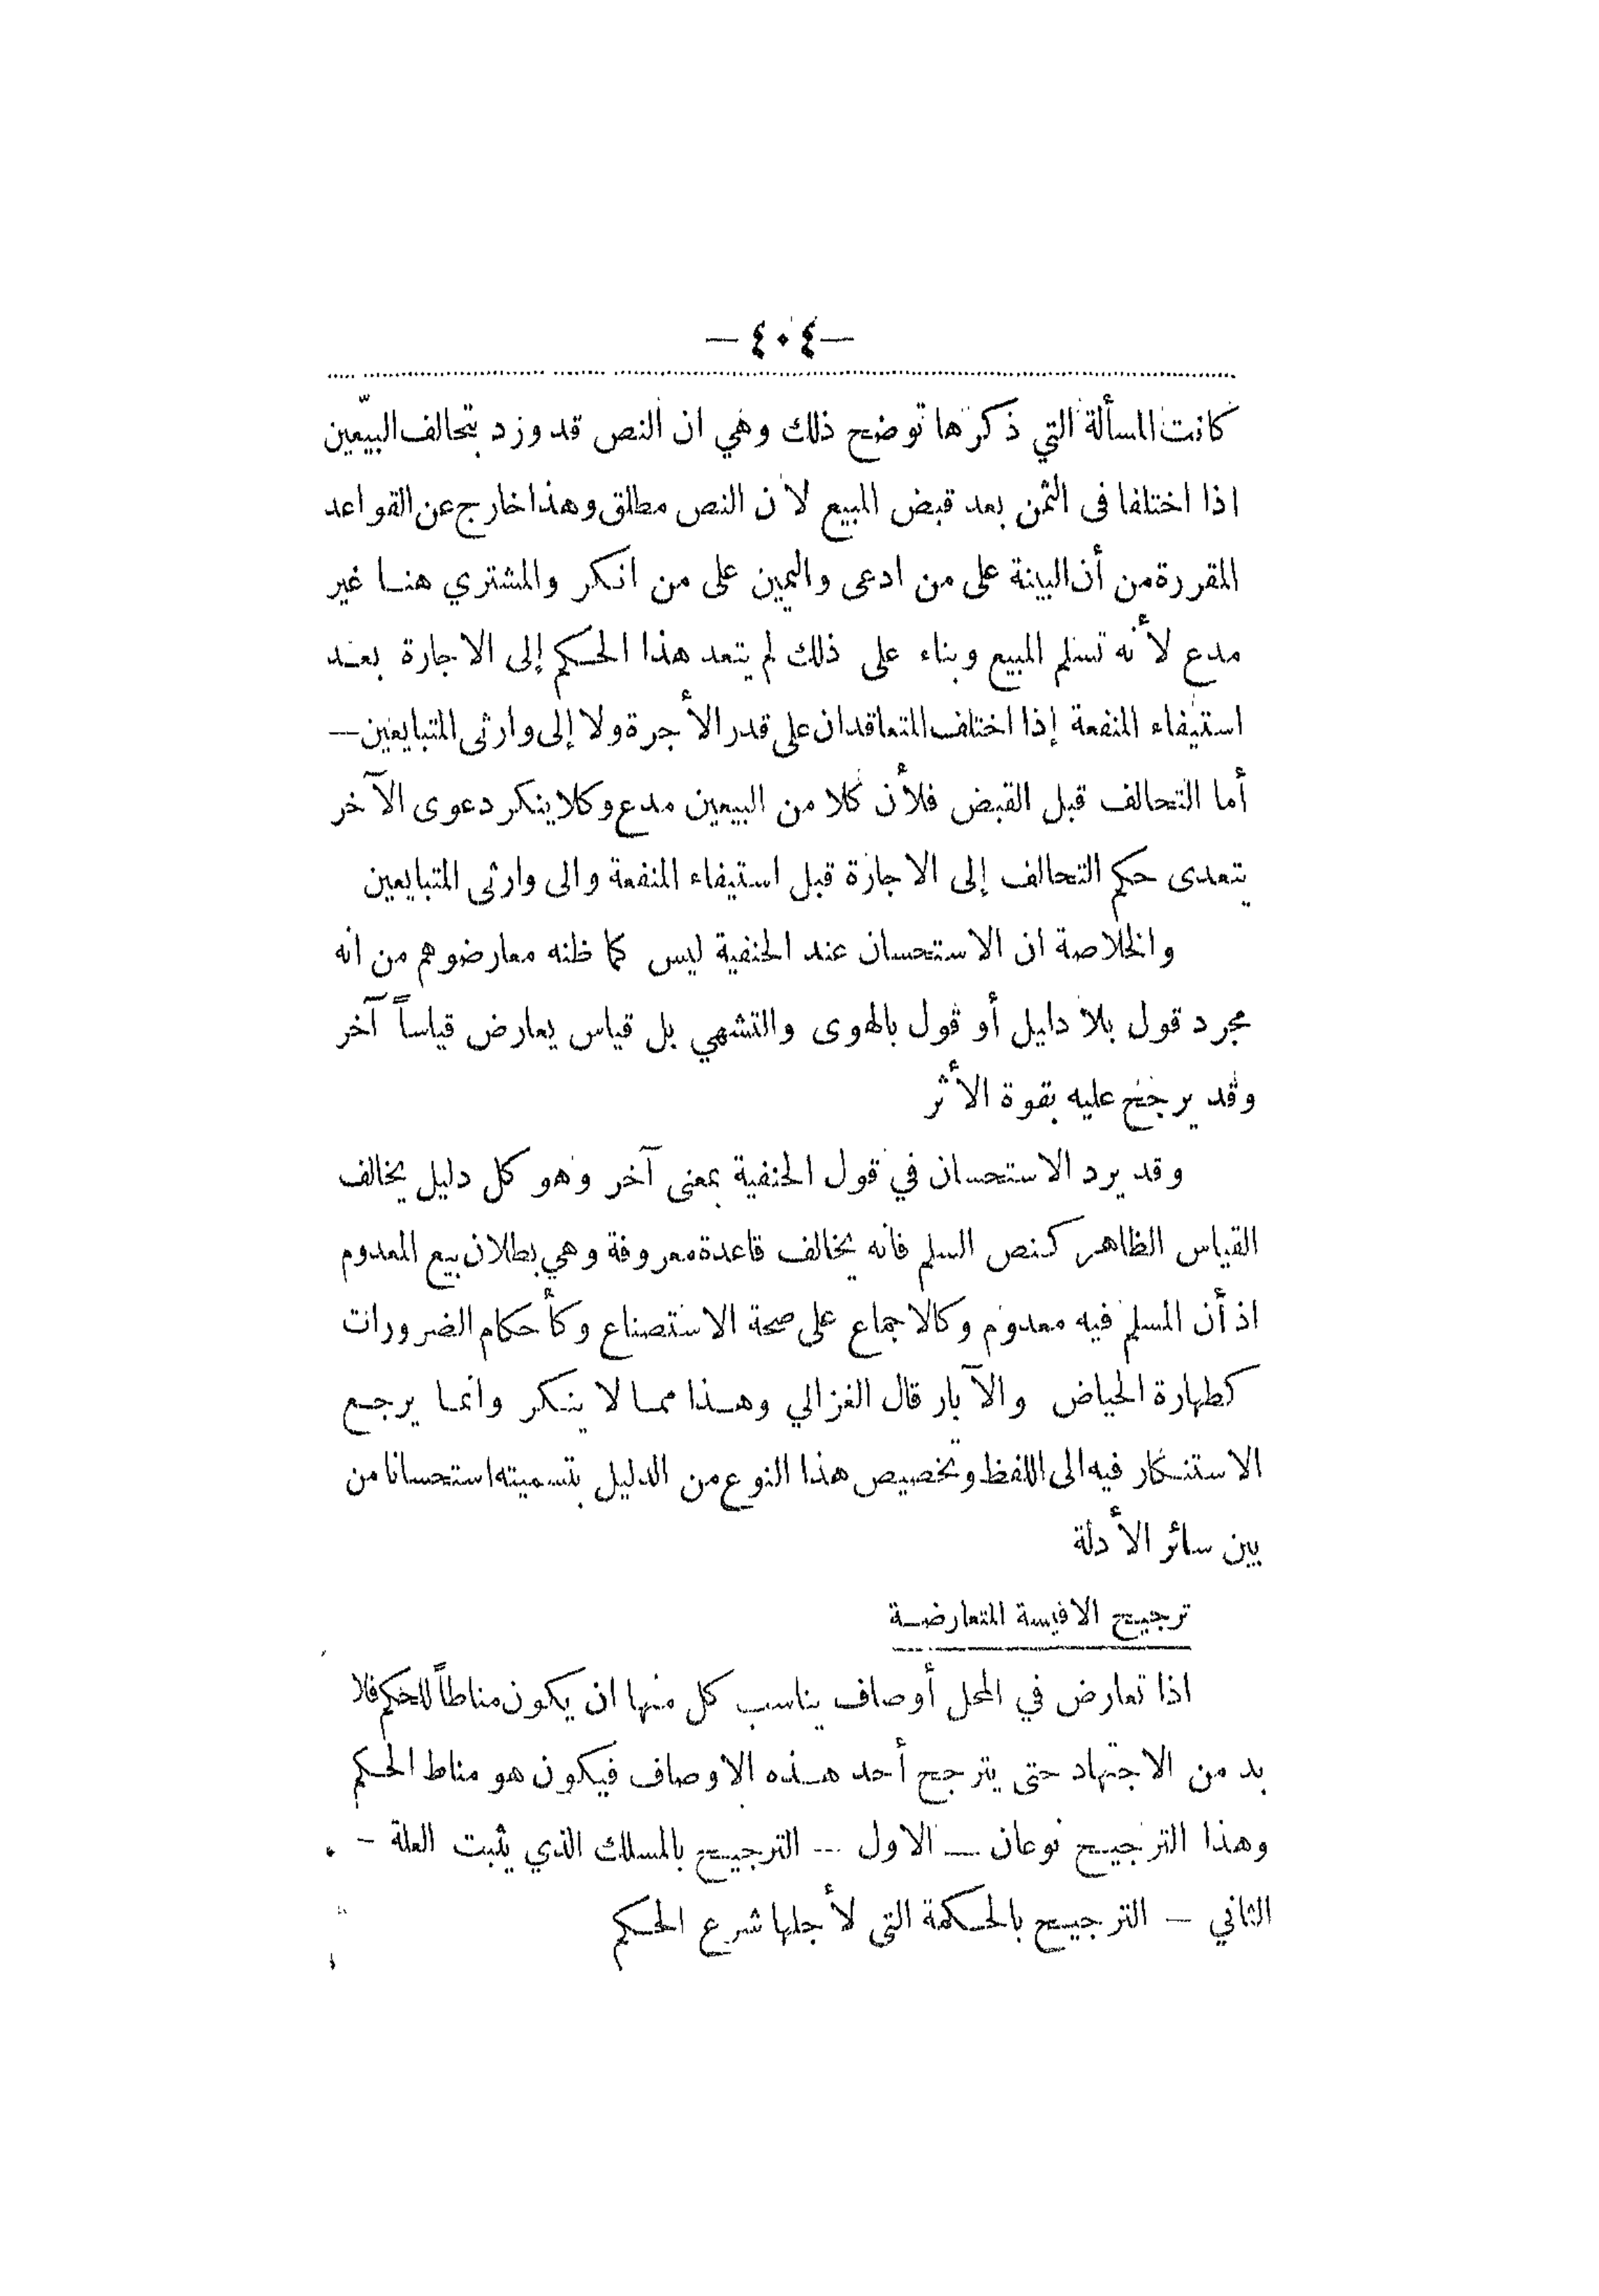 — ٤٠٤ —
كانت المسألة التي ذكرها توضح ذلك وهي ان النص قد ورد بتحالف البيّعين
اذا اختلفا فى الثمن بعد قبض المبيع لان النص مطلق وهذا خارج عن القواعد
المقررة من أن البينة على من ادعى واليمين على من انكر والمشتري هنا غير
مدع لأنه تسلم المبيع وبناء على ذلك لم يتعد هذا الحكم إلى الاجارة بعد
استيفاء المنفعة إذا اختلف المتعاقدان على قدر الأجرة ولا إلى وارثى المتبايعين —
أما التحالف قبل القبض فلأن كلا من البيعين مدع وكلا ينكر دعوى الآخر
يتعدى حكم التحالف إلى الاجازة قبل استيفاء المنفعة والى وارثى المتبايعين
والخلاصة ان الاستحسان عند الحنفية ليس كما ظنه معارضوهم من انه
مجرد قول بلا دليل أو قول بالهوى والتشهي بل قياس يعارض قياساً آخر
وقد يرجح عليه بقوة الأثر
وقد يرد الاستحسان في قول الحنفية بمعنى آخر وهو كل دليل يخالف
القياس الظاهر كنص السلم فانه يخالف قاعدة معروفة وهي بطلان بيع المعدوم
اذ أن المسلم فيه معدوم وكالاجماع على صحة الاستصناع وكأحكام الضرورات
كطهارة الحياض والآبار قال الغزالي وهذا مما لا ينكر وانما يرجع
الاستنكار فيه الى اللفظ وتخصيص هذا النوع من الدليل بتسميته استحسانا من
بين سائر الأدلة
ترجيح الاقيسة المتعارضة
اذا تعارض في المحل أوصاف يناسب كل منها ان يكون مناطاً للحكم فلا
بد من الاجتهاد حتى يترجح أحد هذه الاوصاف فيكون هو مناط الحكم
وهذا الترجيح نوعان — الاول — الترجيح بالمسلك الذي يثبت العلة —
الثاني — الترجيح بالحكمة التى لأجلها شرع الحكم